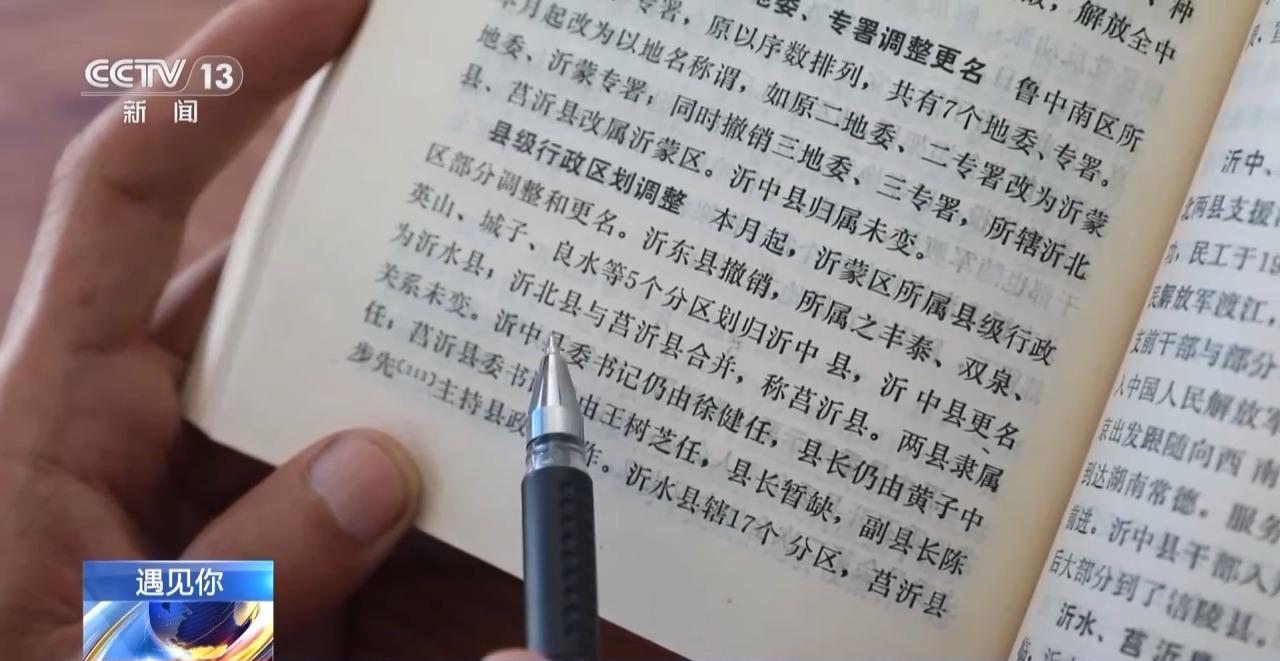 CCTV 13
新闻
种
解放全中
地委、专署调整更名 鲁中南区所
专署，原以序数排列，共有7个地委、专署。
本月起改为以地名称谓，如原二地委、二专署改为沂蒙
地委、沂蒙专署；同时撤销三地委、三专署，所辖沂北
县、莒沂县改属沂蒙区。沂中县归属未变。
县级行政区划调整 本月起，沂蒙区所属县级行政
区部分调整和更名。沂东县撤销，所属之丰泰、双泉、
英山、城子、良水等5个分区划归沂中县，沂中县更名
为沂水县；沂北县与莒沂县合并，称莒沂县。两县隶属
关系未变。沂中县委书记仍由徐健任，县长仍由黄子中
任；莒沂县委书 由王树芝任，县长暂缺，副县长陈
步先 主持县政 作。沂水县辖17个分区，莒沂县
沂中、
北两县支援
民工于19
民解放军渡江，
支前干部与部分
入中国人民解放军
京出发跟随向西南
到达湖南常德。服务
前进。沂中县干部入
后大部分到了涪陵县。
沂水、莒沂县
遇见你